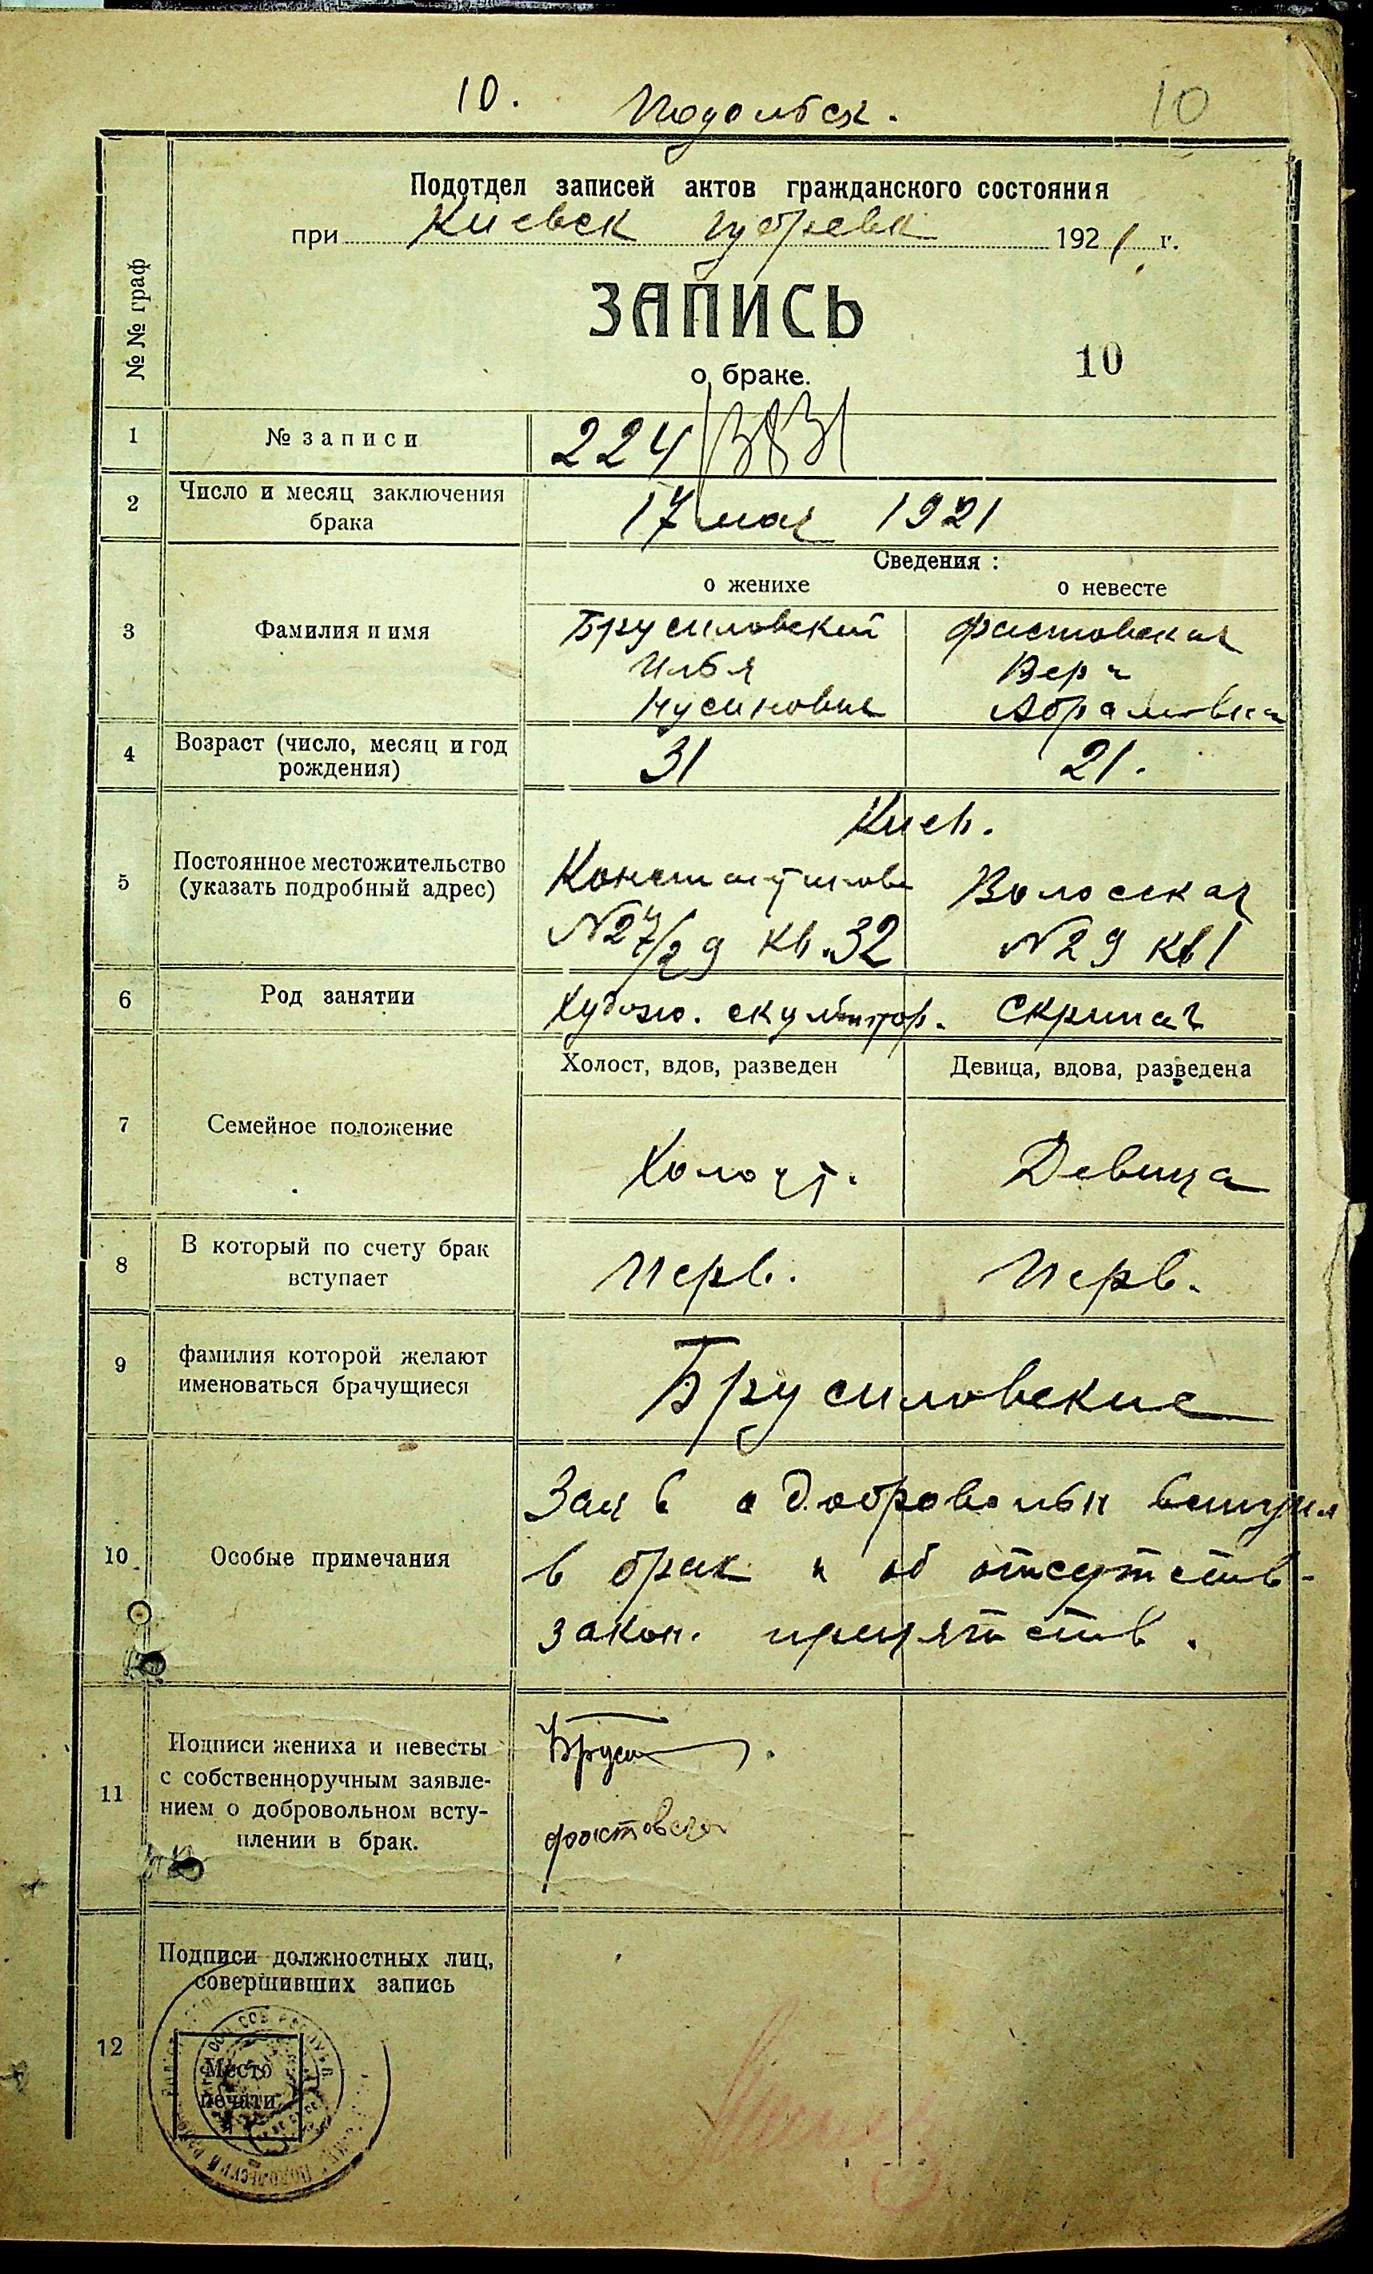 10. Подольск. 10
Подотдел записей актов гражданского состояния
при Киевск губревк 1921 г.
ЗАПИСЬ
о браке.
10
№ № граф
1 № записи 224/3831
2 Число и месяц заключения
брака
17 мая 1921
Сведения :
о женихе о невесте
3 Фамилия и имя
Брусиловский Фастовская
Илья Вера
Нусинович Абрамовна
4 Возраст (число, месяц и год
рождения)
31 21.
Киев.
5 Постоянное местожительство
(указать подробный адрес)
Константинов Волосская
№ 27/29 кв. 32 № 29 кв 1
6 Род занятии Худож. скульптор. Скрипач
Холост, вдов, разведен Девица, вдова, разведена
7 Семейное положение Холост. Девица
8 В который по счету брак
вступает
Перв. Перв.
9 фамилия которой желают
именоваться брачущиеся
Брусиловские
10 Особые примечания
Заяв о добровольн вступл
в брак и об отсутств-
закон. препятств.
11 Подписи жениха и невесты
с собственноручным заявле-
нием о добровольном всту-
плении в брак.
Бруси
Фастовская
12 Подписи должностных лиц,
совершивших запись
Место
печати